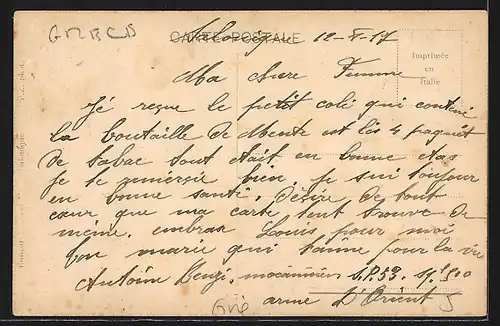 GRECS
CARTE POSTALE
Salonique 12-V-17
Imprimée
en
Italie
Ma chere Femme
Jé reçue le petit colé qui contené
la boutaille de Mente est lés 4 paquet
de tabac tout était en bonne état
Je te remersie bien, je sui toujour
en bonne santé, désire de tout
cœur que ma carte tent trouve de
méme. embras Louis pour moi
ton marie qui t'aime pour la vie
Antoine mecanicien S.P. 53.
armé D'Orient